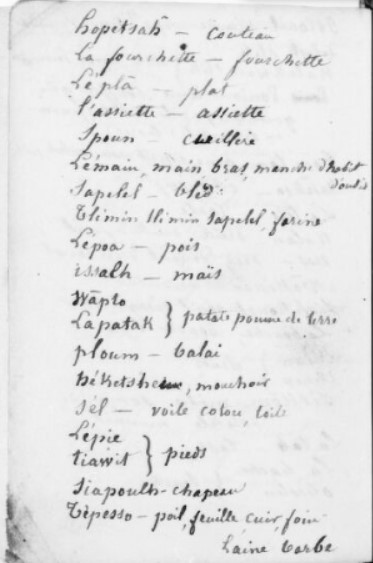 hopetsah — couteau
La fourchette — fourchette
Lépla — plat
l'assiette — assiette
Spoun — cuillère
Lémain, main, bras, manche d'habit
d'outil
Sapelel — bled
Tlimin tlimin sapelel, farine
Lepoa — pois
issalh — maïs
Wapto
Lapatak } patate pomme de terre
ploum — balai
héketshem, mouchoir
Sél — voile coton, toile
Lépie
tiawit } pieds
Siapoulh - chapeau
Tépesso — poil, feuille, cuir, foin
Laine barbe